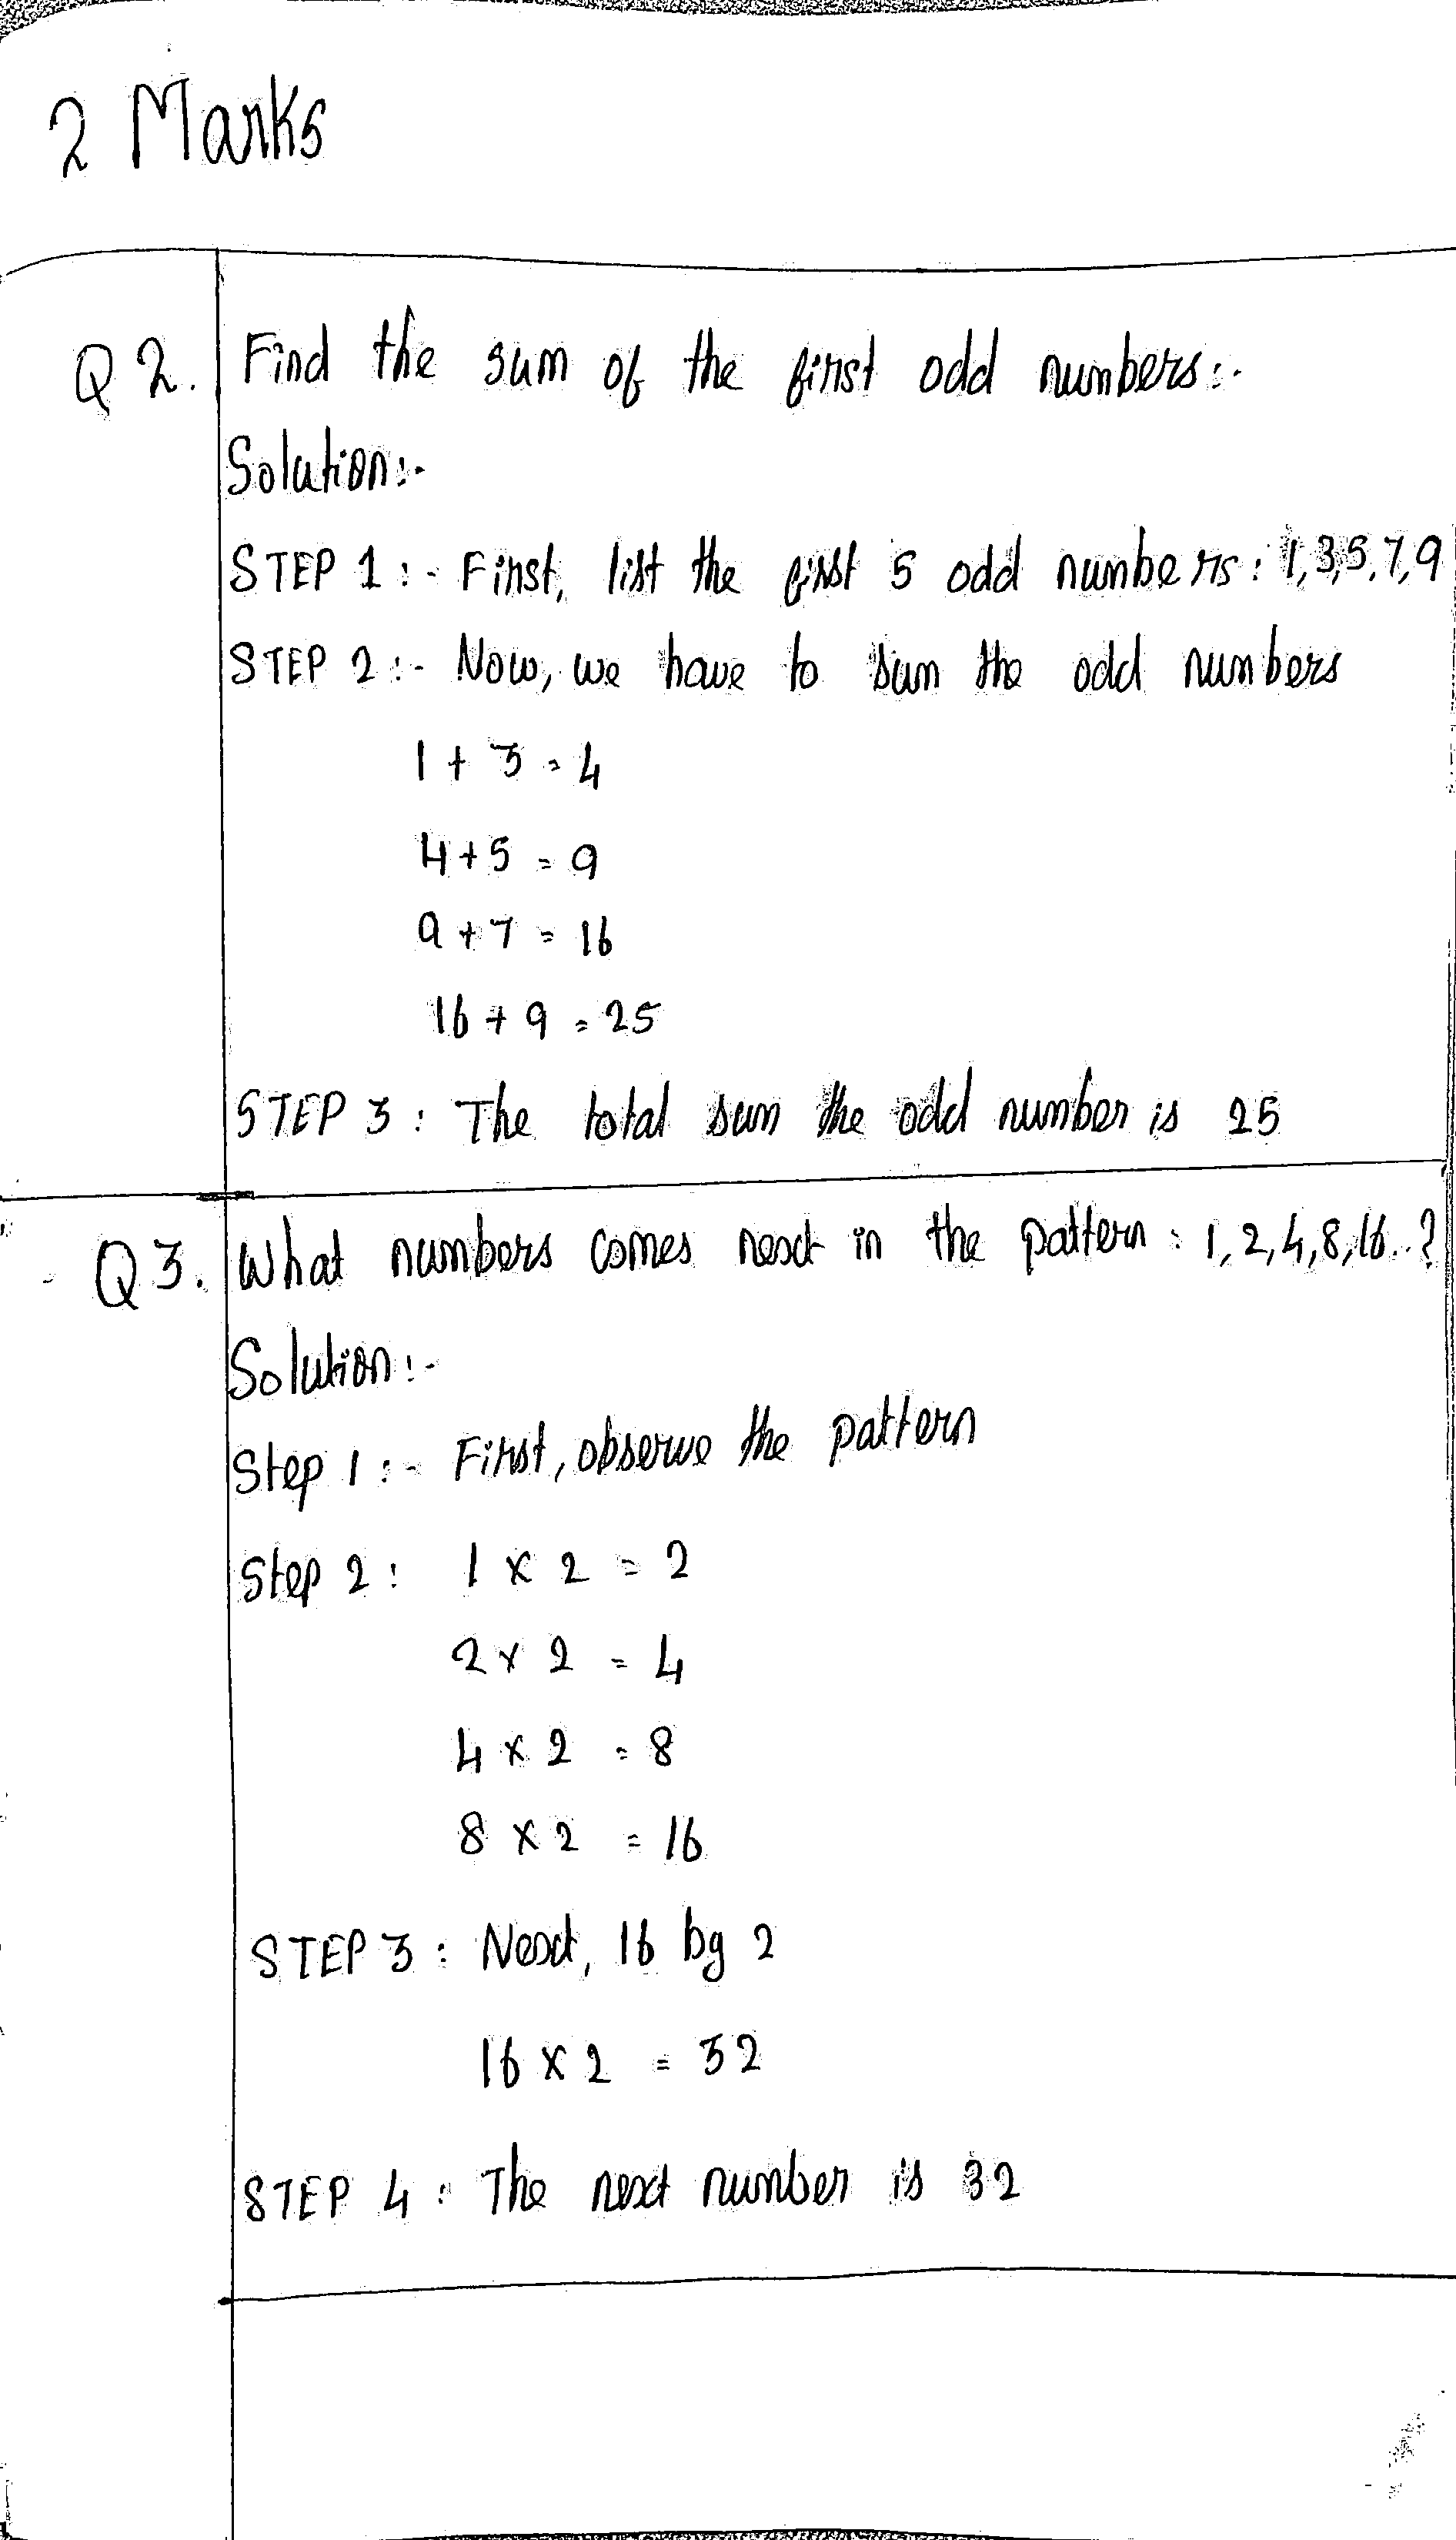 2 Marks
Q 2. Find the sum of the first odd numbers:-
Solution:-
STEP 1 :- First, list the first 5 odd numbers : 1,3,5,7,9
STEP 2 :- Now, we have to sum the odd numbers
1 + 3 = 4
4+5 = 9
9 +7 = 16
16 + 9 = 25
STEP 3 : The total sum the odd number is 25
Q3. What numbers comes next in the pattern : 1, 2, 4, 8, 16..?
Solution :-
Step 1 :- First, observe the pattern
Step 2 : 1 x 2 = 2
2 x 2 = 4
4 x 2 = 8
8 x 2 = 16
STEP 3 : Next, 16 by 2
16 x 2 = 32
STEP 4 : The next number is 32